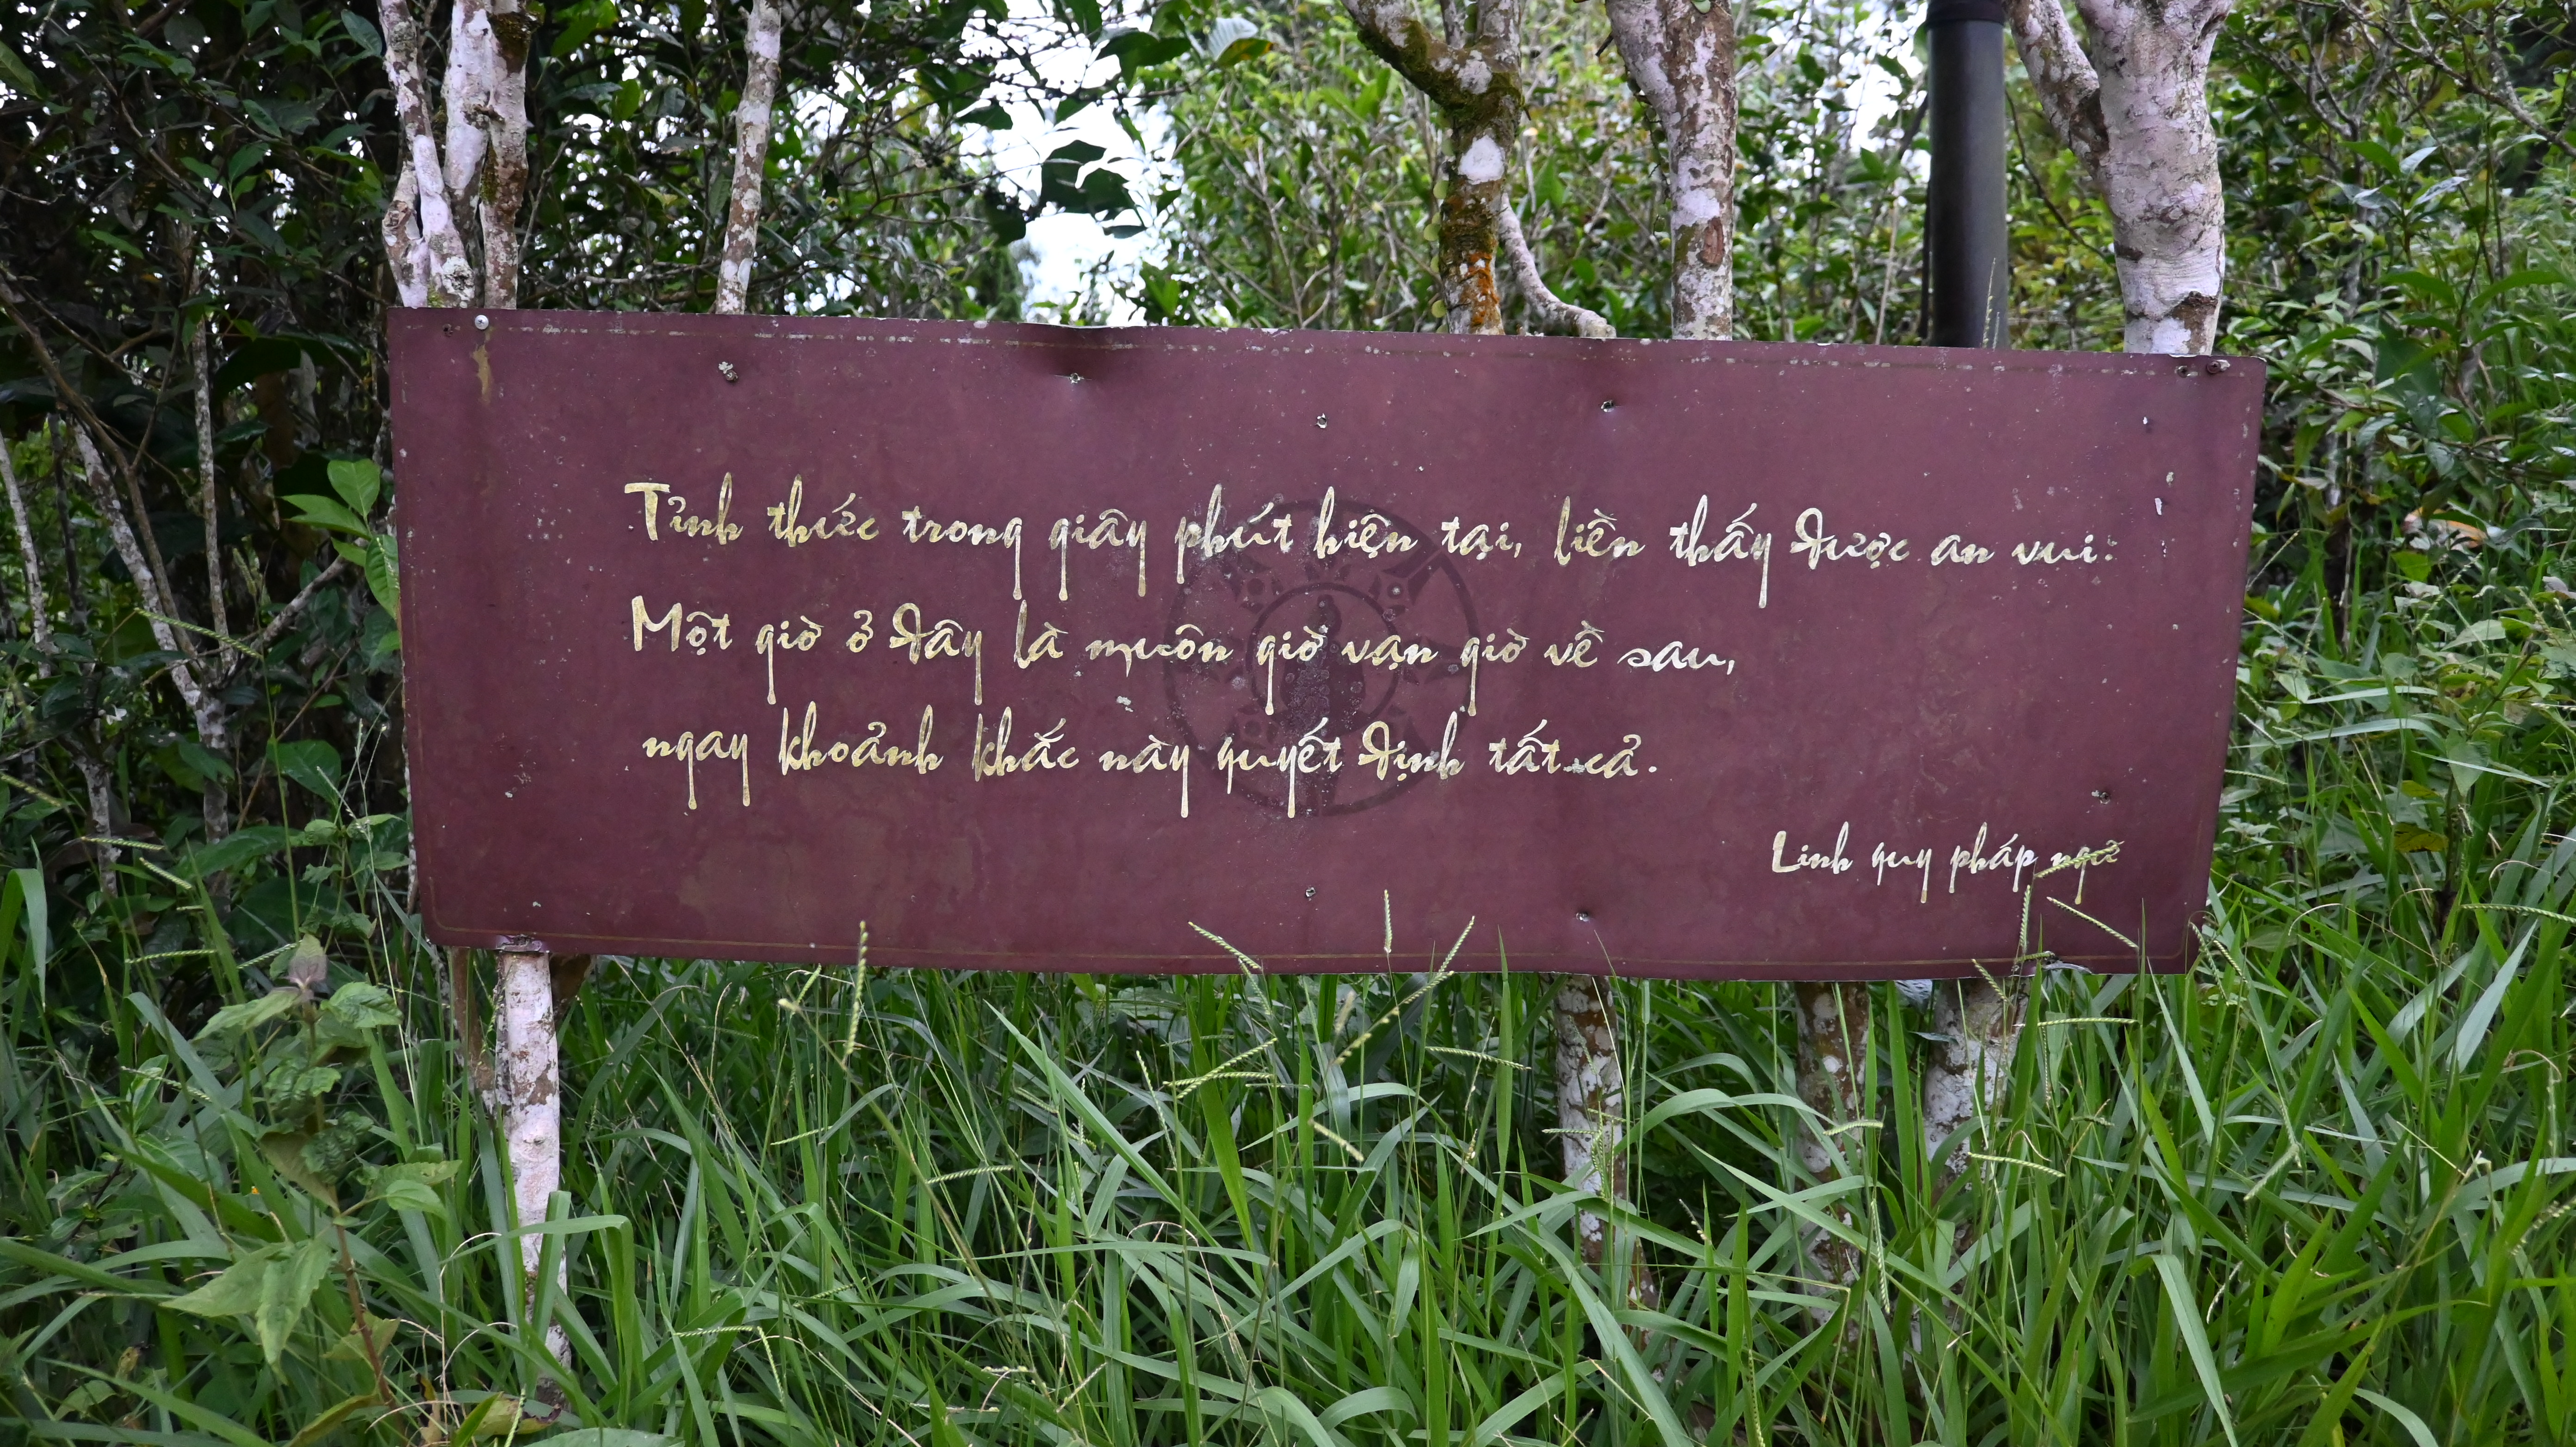 Tỉnh thức trong giây phút hiện tại, liền thấy được an vui.
Một giờ ở đây là muôn giờ vạn giờ về sau,
ngay khoảnh khắc này quyết định tất cả.
Linh quy pháp ngữ